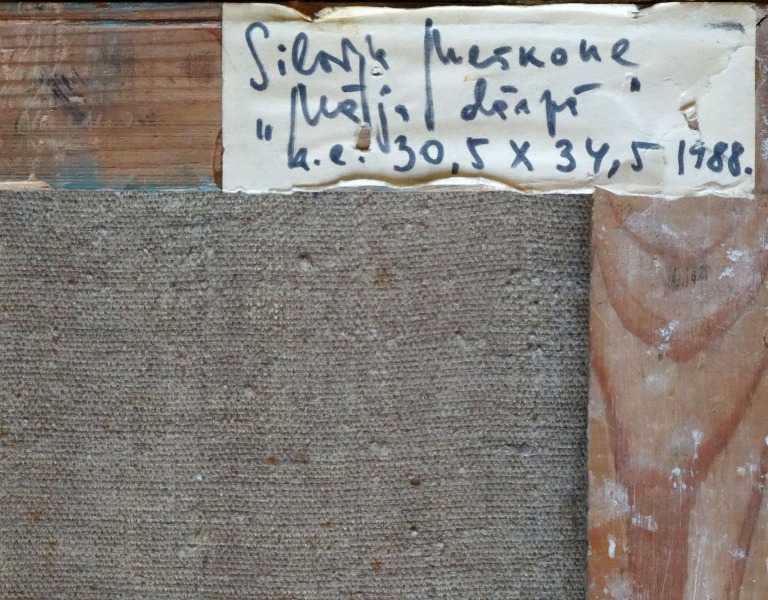 Silvija Meškone
"Māja dārzā"
a.e. 30,5 x 34,5 1988.